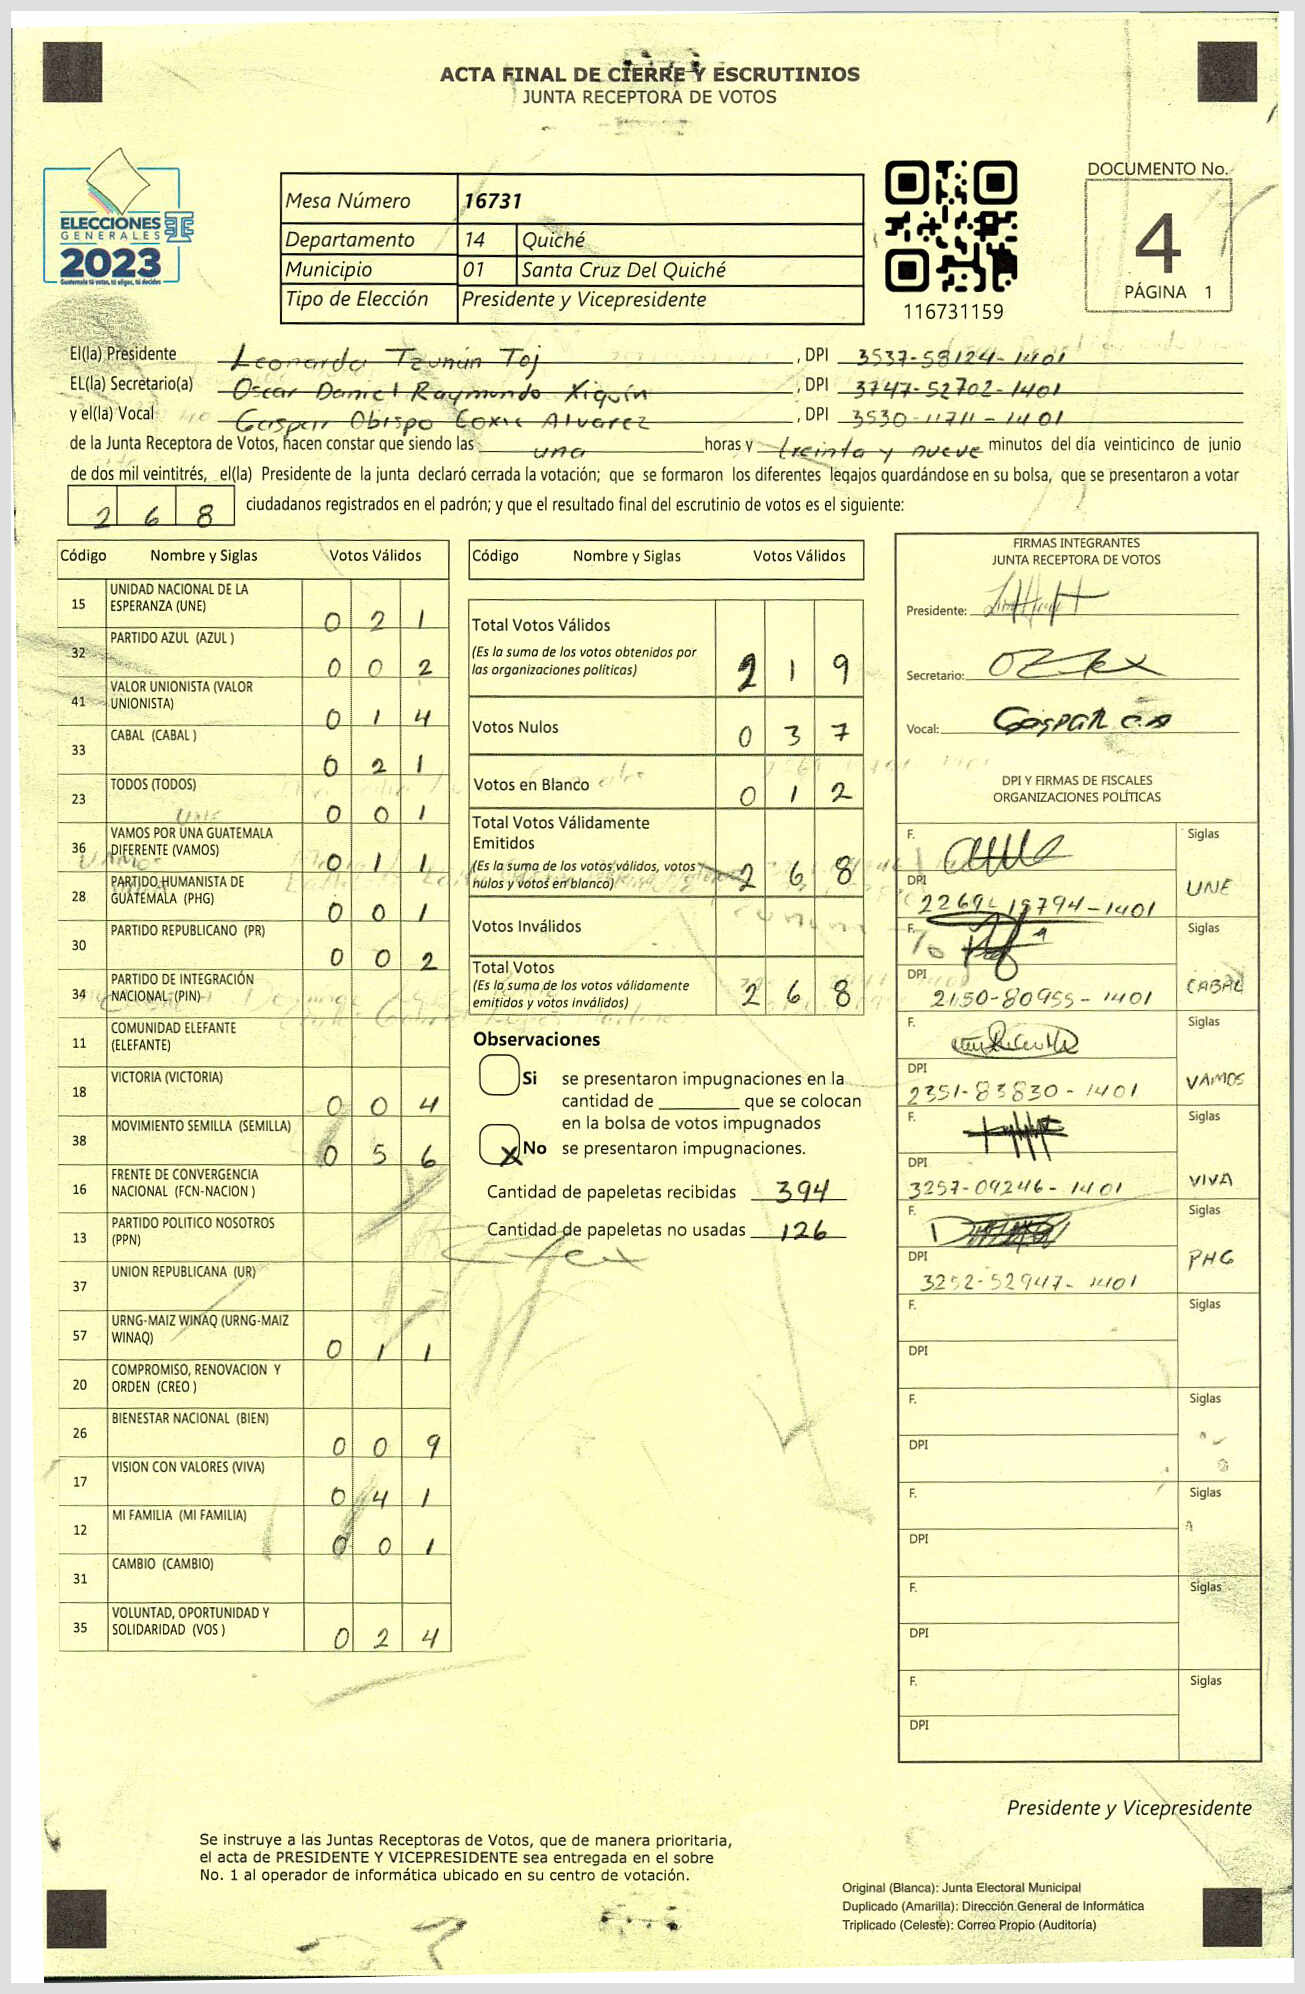 ACTA FINAL DE CIERRE Y ESCRUTINIOS
JUNTA RECEPTORA DE VOTOS
ELECCIONES
GENERALES
2023
Guatemala tú votas, tú eliges, tú decides
TSE
Mesa Número 16731
Departamento 14 Quiché
Municipio 01 Santa Cruz Del Quiché
Tipo de Elección Presidente y Vicepresidente
116731159
DOCUMENTO No.
4
PÁGINA 1
El(la) Presidente Leonardo Tzunún Toj, DPI 3537-58124-1401
EL(la) Secretario(a) Oscar Daniel Raymundo Xiquín, DPI 3747-52702-1401
y el(la) Vocal Gaspar Obispo Alvarez, DPI 3530-11711-1401
de la Junta Receptora de Votos, hacen constar que siendo las una horas y treinta y nueve minutos del día veinticinco de junio
de dos mil veintitrés, el(la) Presidente de la junta declaró cerrada la votación; que se formaron los diferentes legajos guardándose en su bolsa, que se presentaron a votar
268 ciudadanos registrados en el padrón; y que el resultado final del escrutinio de votos es el siguiente:
Código Nombre y Siglas Votos Válidos
15 UNIDAD NACIONAL DE LA ESPERANZA (UNE) 0 2 1
32 PARTIDO AZUL (AZUL ) 0 0 2
41 VALOR UNIONISTA (VALOR UNIONISTA) 0 1 4
33 CABAL (CABAL ) 0 2 1
23 TODOS (TODOS) 0 0 1
36 VAMOS POR UNA GUATEMALA DIFERENTE (VAMOS) 0 1 1
28 PARTIDO HUMANISTA DE GUATEMALA (PHG) 0 0 1
30 PARTIDO REPUBLICANO (PR) 0 0 2
34 PARTIDO DE INTEGRACIÓN NACIONAL (PIN)
11 COMUNIDAD ELEFANTE (ELEFANTE)
18 VICTORIA (VICTORIA) 0 0 4
38 MOVIMIENTO SEMILLA (SEMILLA) 0 5 6
16 FRENTE DE CONVERGENCIA NACIONAL (FCN-NACION )
13 PARTIDO POLITICO NOSOTROS (PPN)
37 UNION REPUBLICANA (UR)
57 URNG-MAIZ WINAQ (URNG-MAIZ WINAQ) 0 1 1
20 COMPROMISO, RENOVACION Y ORDEN (CREO )
26 BIENESTAR NACIONAL (BIEN) 0 0 9
17 VISION CON VALORES (VIVA) 0 4 1
12 MI FAMILIA (MI FAMILIA) 0 0 1
31 CAMBIO (CAMBIO)
35 VOLUNTAD, OPORTUNIDAD Y SOLIDARIDAD (VOS ) 0 2 4
Código Nombre y Siglas Votos Válidos
Total Votos Válidos 2 1 9
(Es la suma de los votos obtenidos por
las organizaciones politicas)
Votos Nulos 0 3 7
Votos en Blanco 0 1 2
Total Votos Válidamente
Emitidos 2 6 8
(Es la suma de los votos válidos, votos
nulos y votos en blanco)
Votos Inválidos
Total Votos 2 6 8
(Es la suma de los votos válidamente
emitidos y votos inválidos)
Observaciones
Si se presentaron impugnaciones en la
cantidad de ________ que se colocan
en la bolsa de votos impugnados
X No se presentaron impugnaciones.
Cantidad de papeletas recibidas 394
Cantidad de papeletas no usadas 126
FIRMAS INTEGRANTES
JUNTA RECEPTORA DE VOTOS
Presidente:
Secretario:
Vocal: Gaspar
DPI Y FIRMAS DE FISCALES
ORGANIZACIONES POLÍTICAS
F. Siglas
DPI UNE
F. Siglas
DPI 2150-80955-1401 CABAL
F. Siglas
DPI 2351-83830-1401 VAMOS
F. Siglas
DPI 3257-09246-1401 VIVA
F. Siglas
DPI 3252-52947-1401 PHG
F. Siglas
DPI
F. Siglas
DPI
F. Siglas
DPI
F. Siglas
DPI
F. Siglas
DPI
Presidente y Vicepresidente
Se instruye a las Juntas Receptoras de Votos, que de manera prioritaria,
el acta de PRESIDENTE Y VICEPRESIDENTE sea entregada en el sobre
No. 1 al operador de informática ubicado en su centro de votación.
Original (Blanca): Junta Electoral Municipal
Duplicado (Amarilla): Dirección General de Informática
Triplicado (Celeste): Correo Propio (Auditoría)